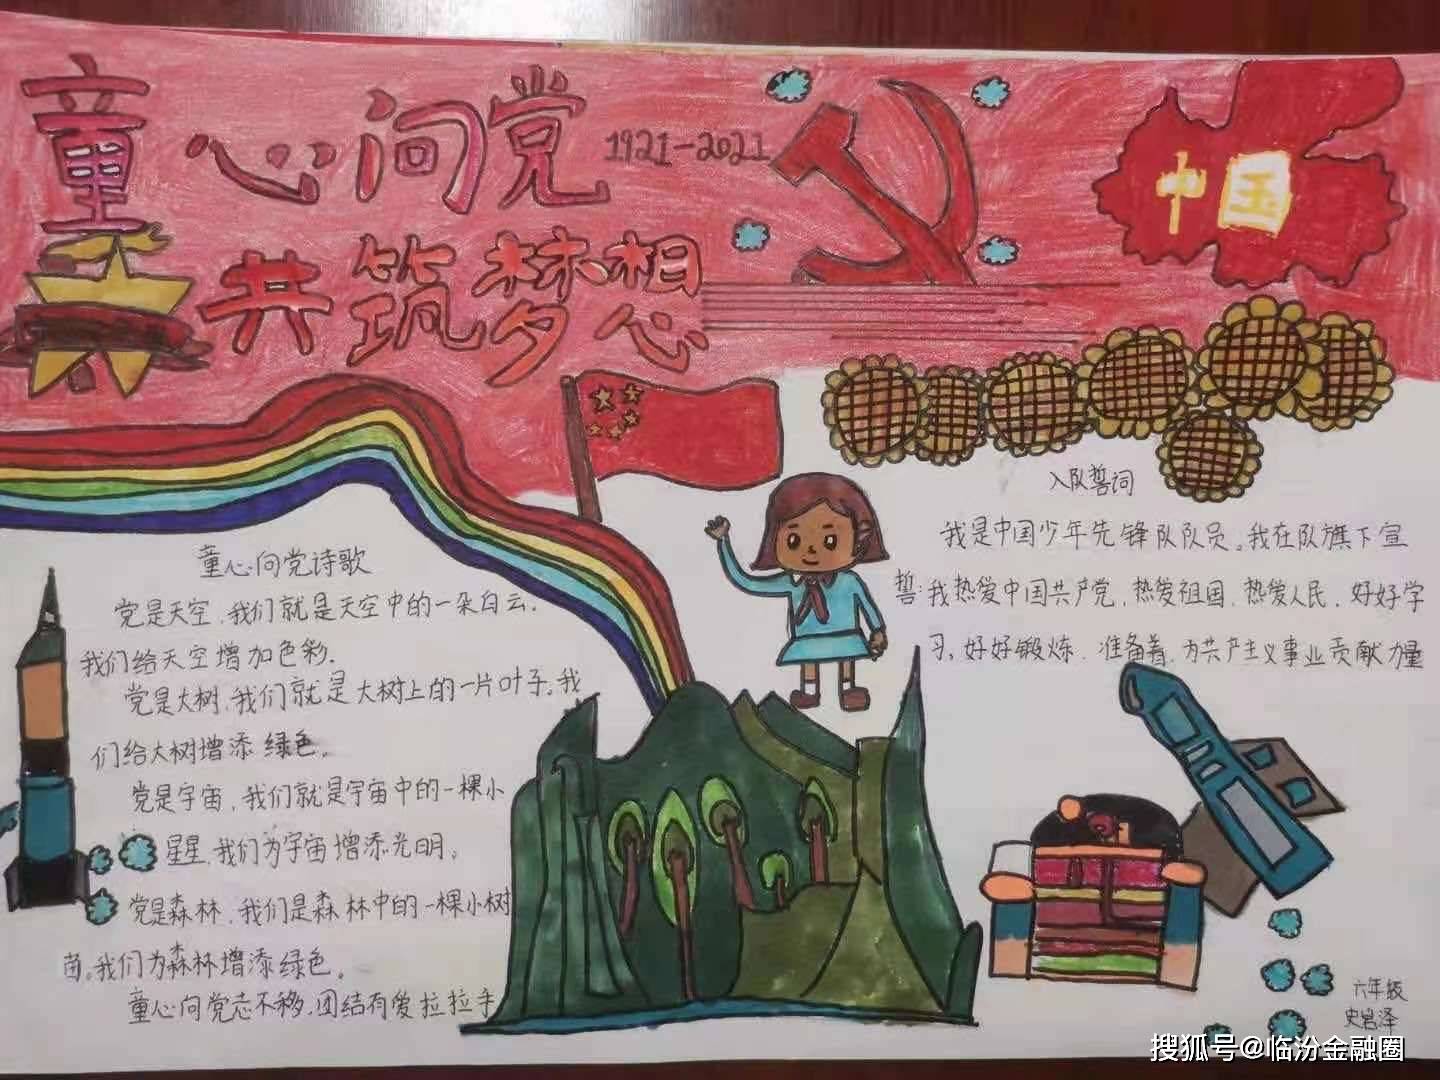 童心向党
1921-2021
共筑梦想
中国
入队誓词
我是中国少年先锋队队员。我在队旗下宣
誓:我热爱中国共产党,热爱祖国,热爱人民,好好学
习,好好锻炼,准备着,为共产主义事业贡献力量
童心向党诗歌
党是天空,我们就是天空中的一朵白云.
我们给天空增加色彩.
党是大树,我们就是大树上的一片叶子。我
们给大树增添绿色。
党是宇宙,我们就是宇宙中的一棵小
星星,我们为宇宙增添光明。
党是森林,我们是森林中的一棵小树
苗。我们为森林增添绿色。
童心向党志不移,团结有爱拉拉手
六年级
史岩泽
搜狐号@临汾金融圈